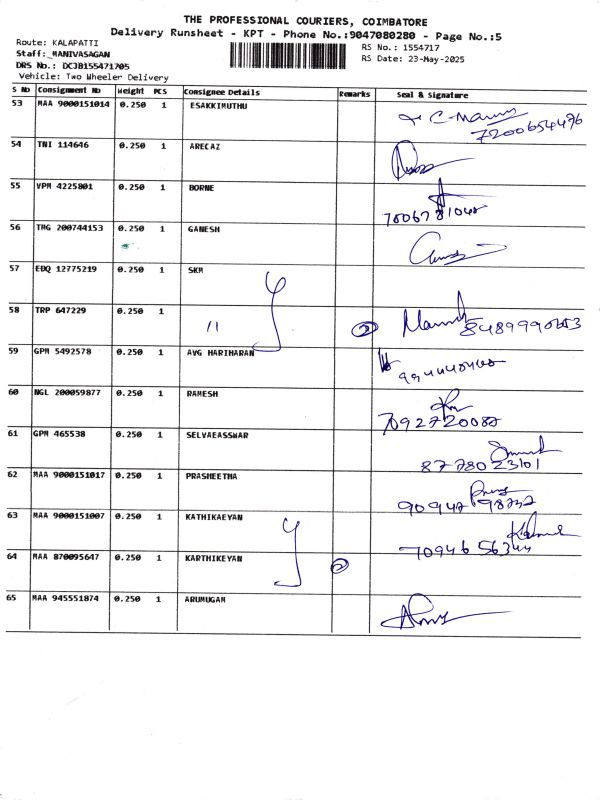 THE PROFESSIONAL COURIERS, COIMBATORE
Delivery Runsheet - KPT - Phone No.:9047080280 - Page No.:5
Route: KALAPATTI
Staff: MANIVASAGAN
DRS No.: DCJB155471705
Vehicle: Two Wheeler Delivery
RS No.: 1554717
RS Date: 23-May-2025
S No Consignment No Weight PCS Consignee Details Remarks Seal & Signature
53 MAA 9000151014 0.250 1 ESAKKIMUTHU
7200654496
54 TNI 114646 0.250 1 ARECAZ
55 VPM 4225801 0.250 1 BORNE
56 TMG 200744153 0.250 1 GANESH
57 EDQ 12775219 0.250 1 SKM
58 TRP 647229 0.250 1 11 2
59 GPM 5492578 0.250 1 AVG HARIHARAN
60 NGL 200059877 0.250 1 RAMESH
7092720082
61 GPM 465538 0.250 1 SELVAEASSWAR
8778023101
62 MAA 9000151017 0.250 1 PRASHEETHA
63 MAA 9000151007 0.250 1 KATHIKAEYAN
64 MAA 870095647 0.250 1 KARTHIKEYAN 2
65 MAA 945551874 0.250 1 ARUMUGAM